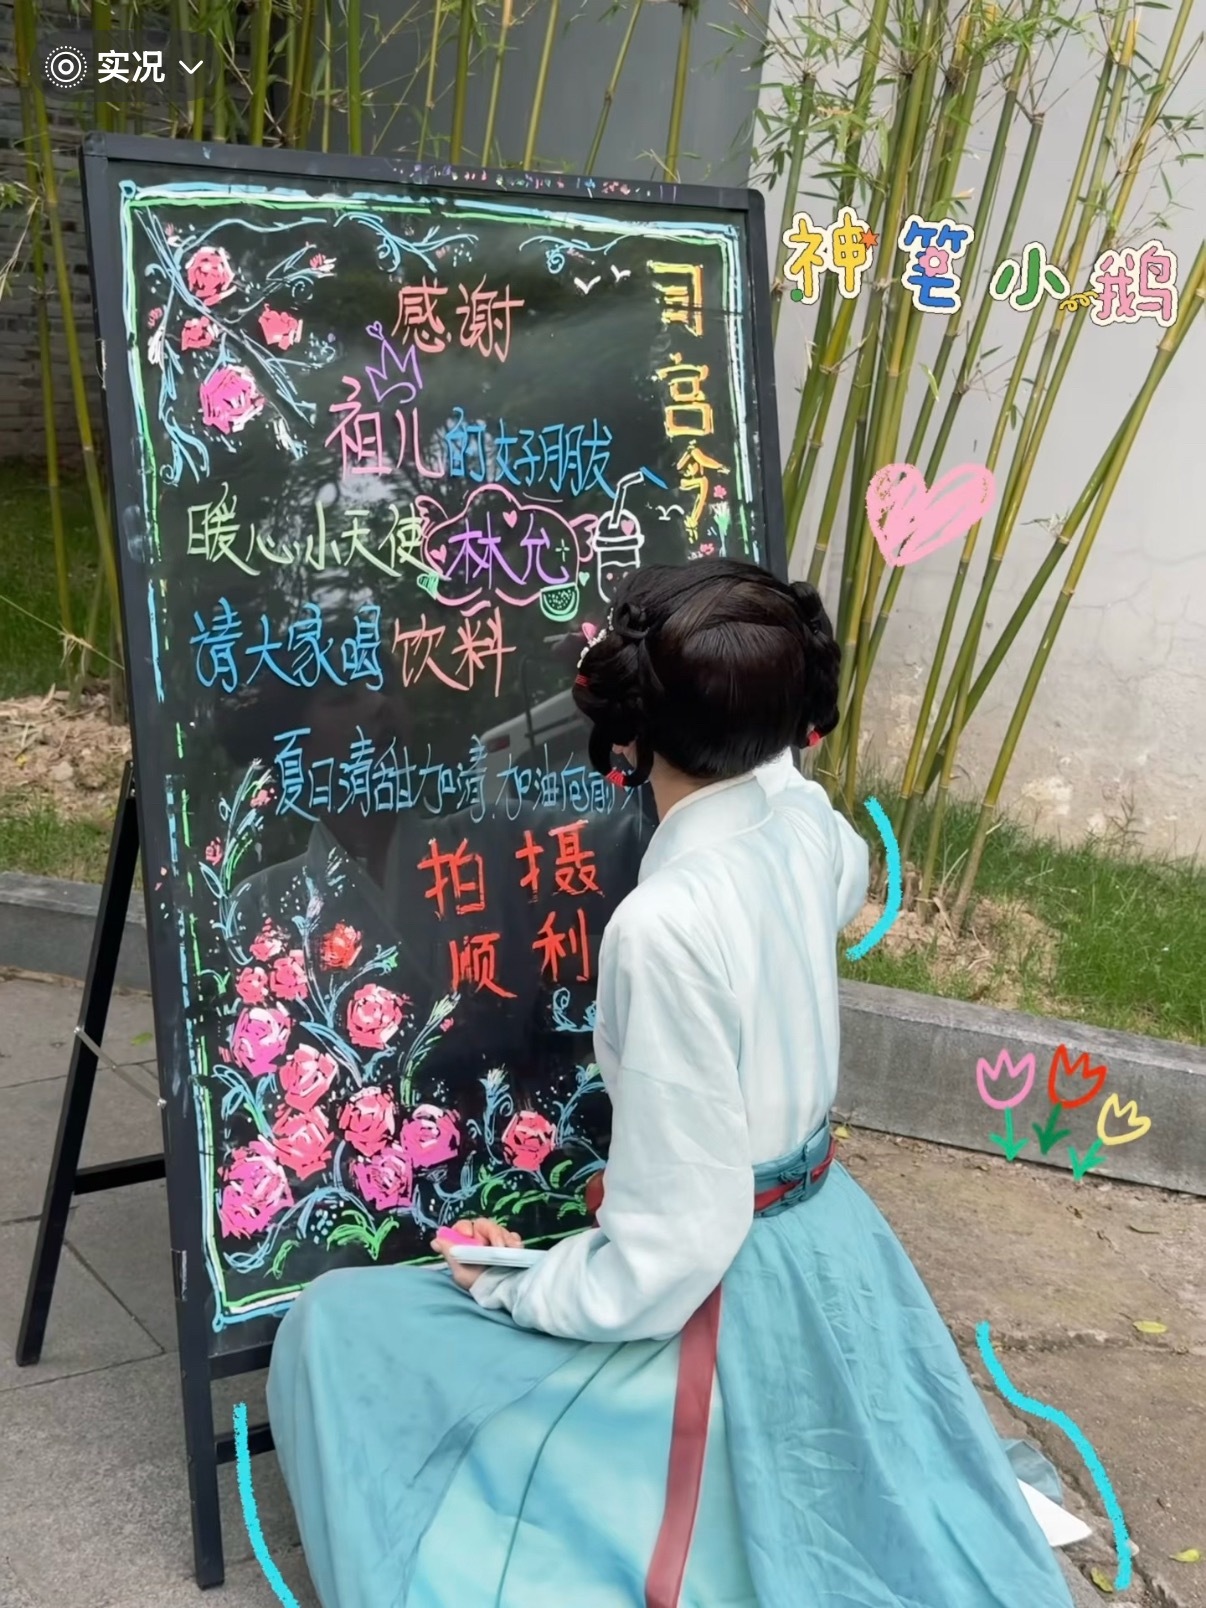 实况
神笔小鹅
司宫令
感谢
祖儿的好朋友、
暖心小天使林允
请大家喝饮料
夏日清甜加清 加油向前
拍摄
顺利